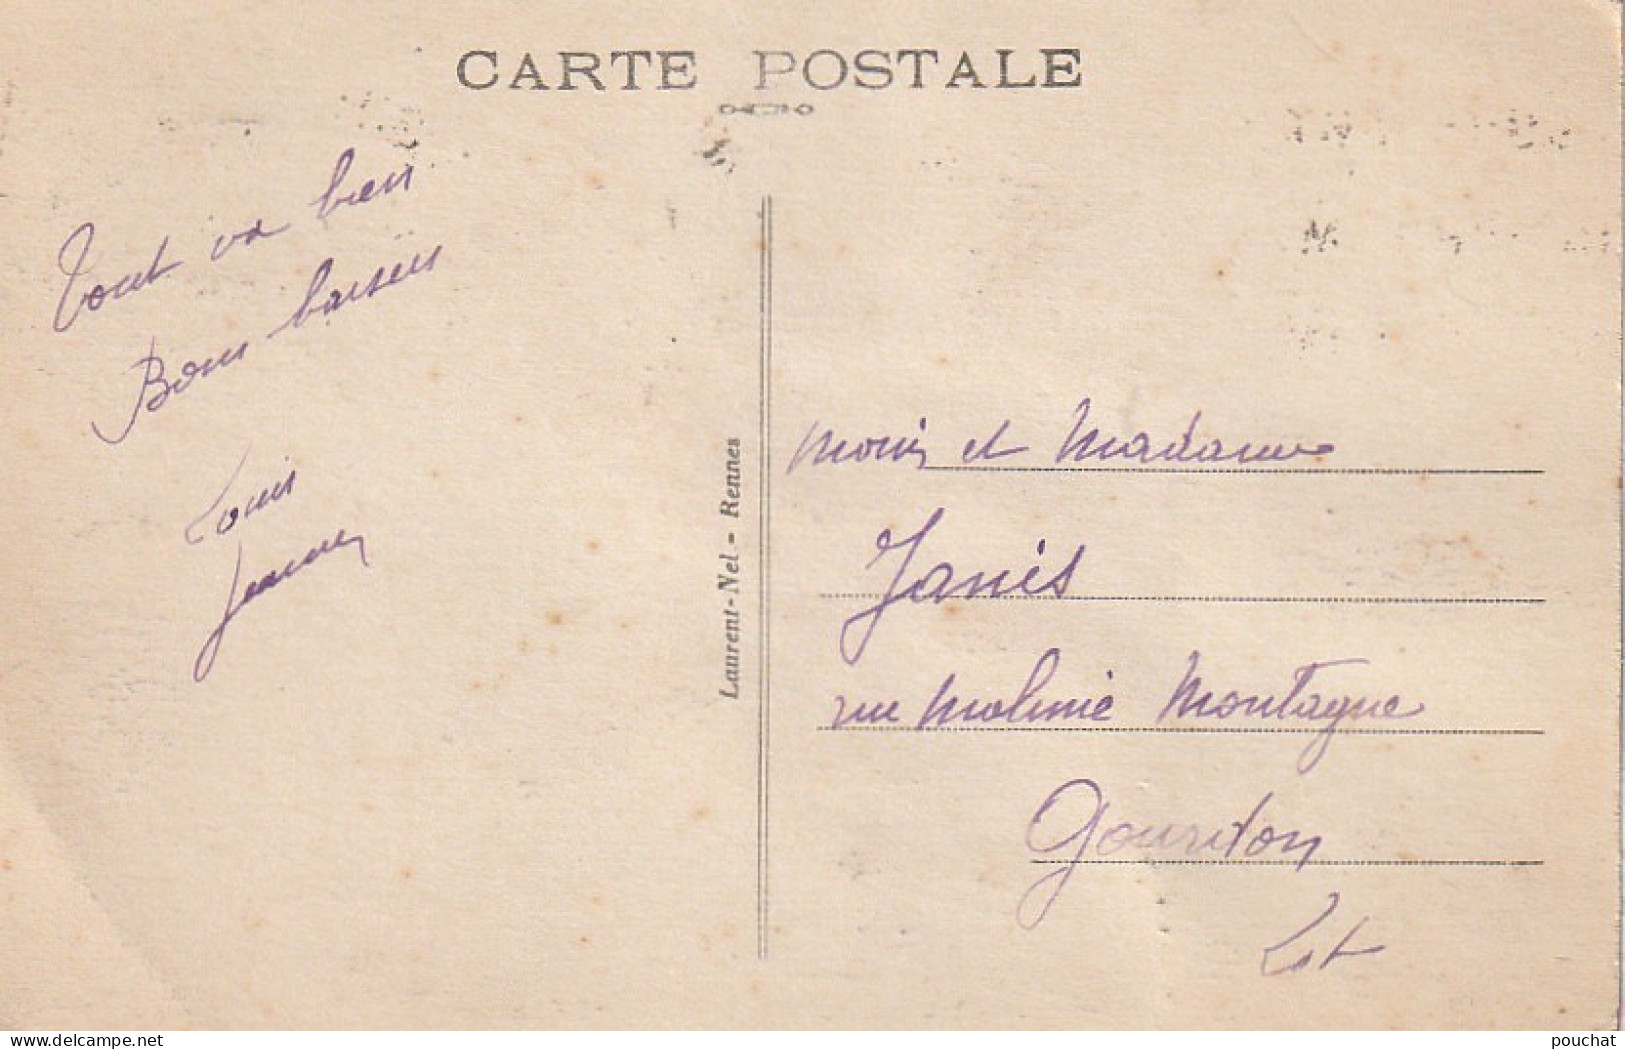 CARTE POSTALE
Tout va bien
Bons baisers
Louis
Jeanne
Laurent-Nel - Rennes
et Madame
Janis
rue Molinié Montagne
Gourdon
Lot
pouchat